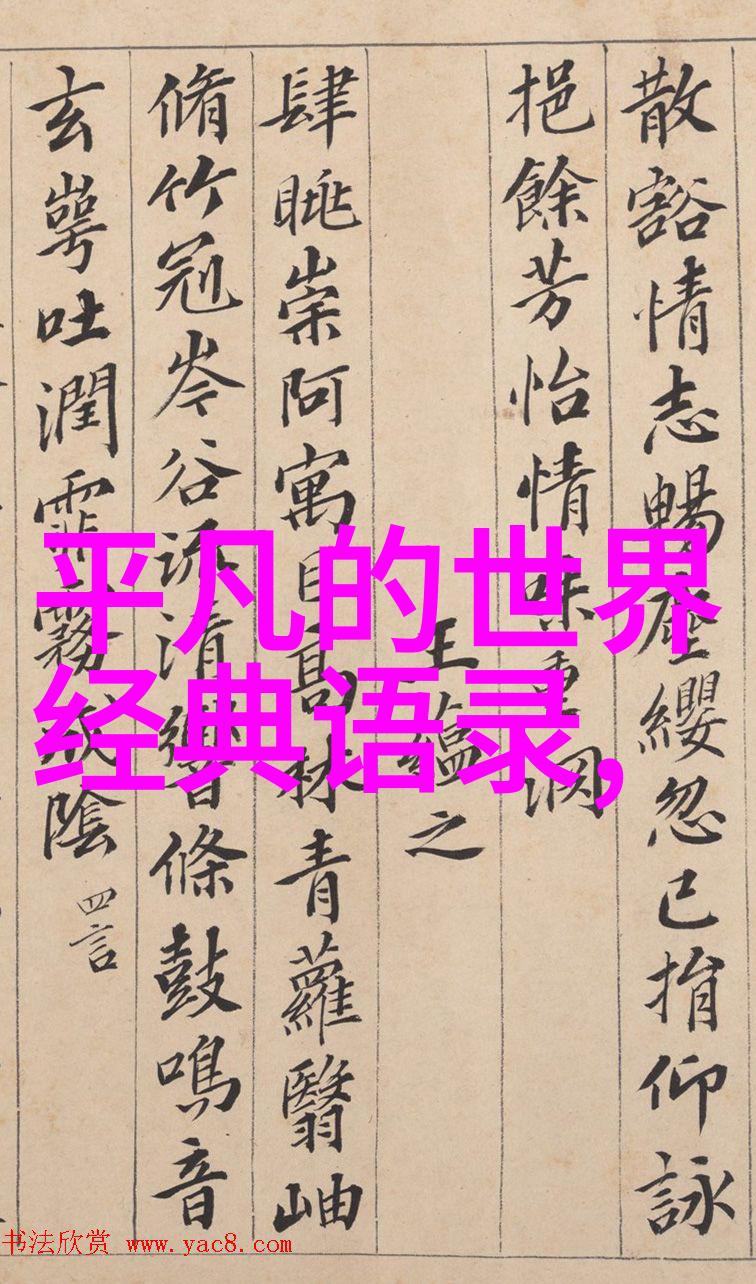 散豁情志暢塵纓忽已捐仰詠
挹餘芳怡情味重淵
王蘊之
肆眺崇阿寓目高林青蘿翳岫
脩竹冠岑谷流清響條鼓鳴音
玄崿吐潤霏霧成陰
四言
平凡的世界
经典语录,
书法欣赏 www.yac8.com